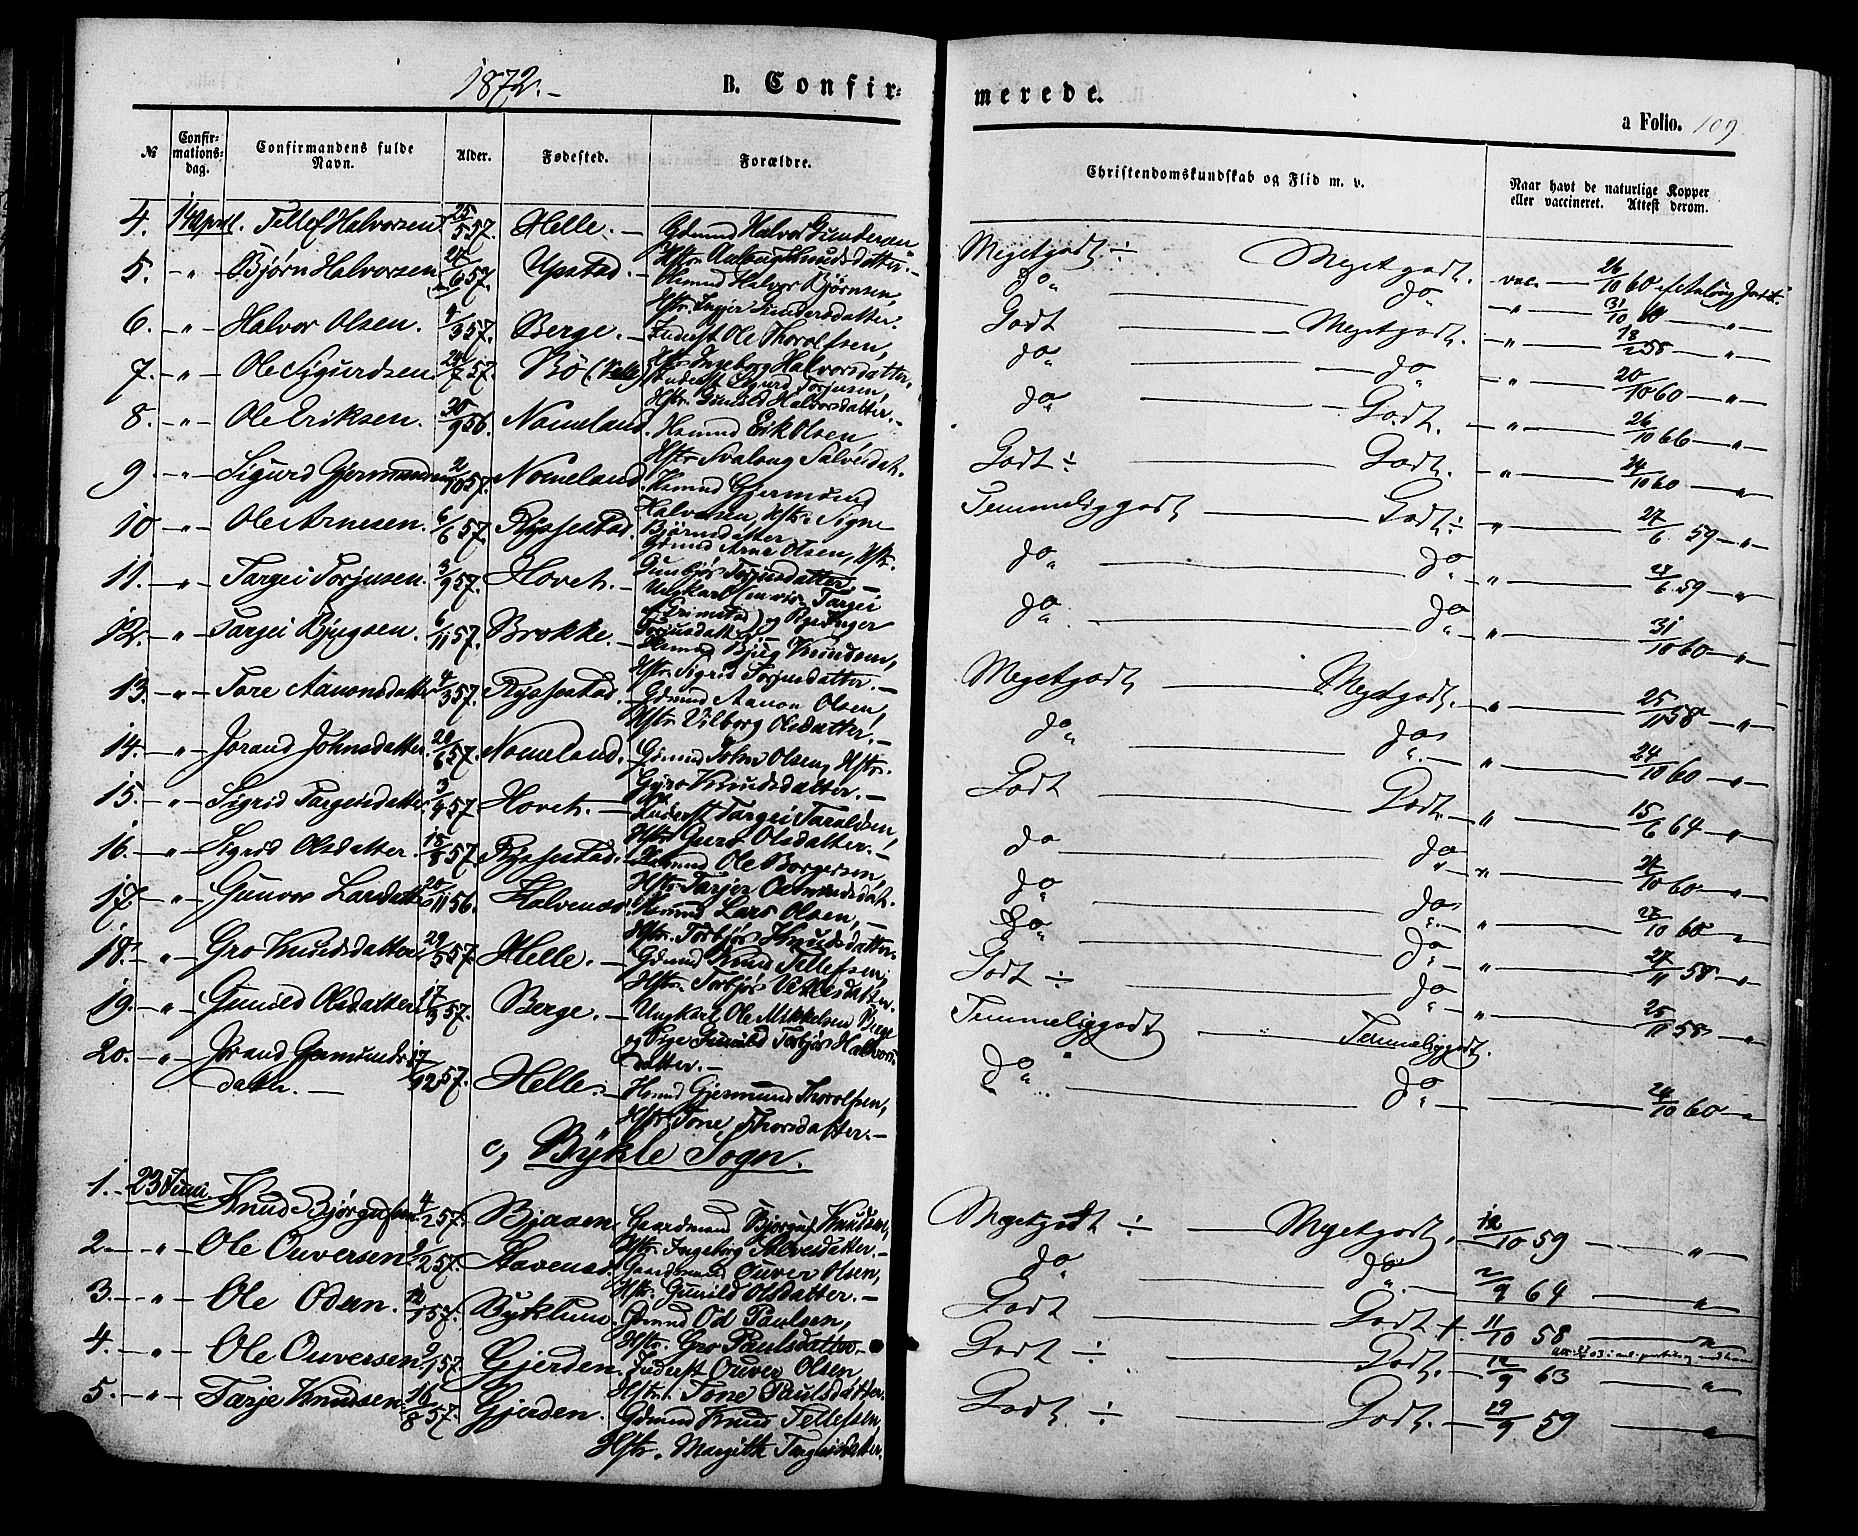 1872.-
B. Confir-
merede.
a Folio. 109
№ Confir-mations-dag. Confirmandens fulde Navn. Alder. Fødested. Forældre. Christendomskundskab og Flid m. v. Naar havt de naturlige Kopper eller vaccineret. Attest derom.
4. 14 April. Tellef Halvorsen 25/5 57. Helle. — Gdmnd Halvor Gunderson Hstr Aasberg Knudsdatter. — Megetgodt ÷ Megetgodt. vac. — 26/10 60
5. — " — Bjørn Halvorsen 24/6 57. Upstad. — Hsmnd Halvor Bjørnsen, Hstr. Inger Gundersdatter. do do — " — 31/10 60 — " —
6. — " — Halvor Olsen. 4/3 57. Berge. — Inderst Ole Thorolfsen, Hstr Ingeborg Halvorsdatter. Godt — Megetgodt. — " — 18/2 58 — " —
7. — " — Ole Sigurdsen 24/7 57. Bö (Valle) Inderst Sigurd Torjusen, Hstr. Gunild Halvorsdatter. — do — do — " — 20/10 60 — " —
8. — " — Ole Eriksen. 30/9 56. Nomeland. Hsmnd Erik Olsen, Hstr Svalaug Salvesdat. do — Godt. — " — 26/10 66 — " —
9. — " — Sigurd Gjermundsen 2/10 57. Nomeland. Hsmnd Gjermund Halvorsen, Hstr. Signe Bjørnsdatter Godt ÷ — Godt. — " — 24/10 60 — " —
10 — " — Ole Arnesen. 6/6 57. Ryssestad. Gdmnd Arne Olsen, Hstr. Gunbjör Torjusdatter — Temmeliggodt — Godt ÷ — " — 27/6 59 — " —
11. — " — Targei Torjusen. 3/9 57. Hovet. — Ungkarl Targei Grimstad) og Pige Inger Torjusdatter do — do — " — 27/6 59 — " —
12. — " — Targei Bjugsen. 6/11 57. Brokke. — Hsmnd Bjug Knudsen, Hstr. Sigrid Torjusdatter. — do — do — " — 31/10 60 — " —
13. — " — Tore Aanonsdatter 4/3 57. Ryssestad. — Gdmnd Aanon Olsen, Hstr Vilborg Olsdatter. — Megetgodt — Megetgodt. — " — 25/11 58 — " —
14. — " — Jorand Johnsdatter. 20/6 57. Nomeland. — Gdmnd John Olsen, Hstr. Gyro Knudsdatter. — do — do — " — 24/10 60 — " —
15. — " — Sigrid Targeisdatter 3/4 57. Hovet. — Inderst Targei Taraldsen, Hstr Guro Olsdatter. — Godt — Godt. — " — 15/6 64 — " —
16. — " — Sigrid Olsdatter. 15/8 57. Ryssestad. Hsmnd Ole Borgersen, Hstr Tarjer Osmundsdat. do — do — " — 24/10 60 — " —
17. — " — Gunvor Larsdatter 20/11 56. Halvenæs. Hsmnd Lars Olsen, — Hstr. Torbjör Knudsdatter. do — do — " — 27/10 60 — " —
18. — " — Gro Knudsdatter 29/5 57. Helle. — Gdmnd Knud Tellefsen, Hstr. Torbjör Vetlesdatter. do — do — " — 27/11 58 — " —
19. — " — Gunild Olsdatter 17/3 57. Berge. — Ungkarl Ole Mikkelsen Berge og Pige Gunild Torbjör Halvorsdatter. — Godt ÷ — do — " — 25/11 58 — " —
20. — " — Jorand Gjermundsdatter. — 17/12 57. Helle. — Hsmnd Gjermund Thorolfsen, Hstr. Tone Thorsdatter. — Temmeliggodt — Temmeliggodt. 24/10 60 — " —
do — do —
c, Bykle Sogn.
1. 23 Juni Knud Bjørgufsen 4/2 57. Bjaaen Gaardmand Bjørguf Knudsen, Hstr. Ingeborg Salvesdatter. — Megetgodt ÷ — Megetgodt. 12/10 59 — " —
2. — " — Ole Ouversen 9/2 57. Hovenæs. Gaardmand Ouver Olsen, Hstr. Gunild Olsdatter. — do — do — 2/9 64 — " —
3. — " — Ole Odsen. 12/1 57. Byklum. Gdmnd Od Paulsen, Hstr. Gro Paulsdatter. — Godt — Godt +. 11/10 58 — " —
4. — " — Ole Ouversen 9/1 57. Gjerden. Inderst Ouver Olsen, Hstr. Tone Paulsdatter. Godt ÷ — Godt. — 12/9 63 — " —
5. — " — Tarje Knudsen 16/8 57. Gjerden. Gdmnd Knud Tellefsen, Hstr. Margith Targeisdatter. Godt. ÷ — Godt. — 29/9 59 — " —